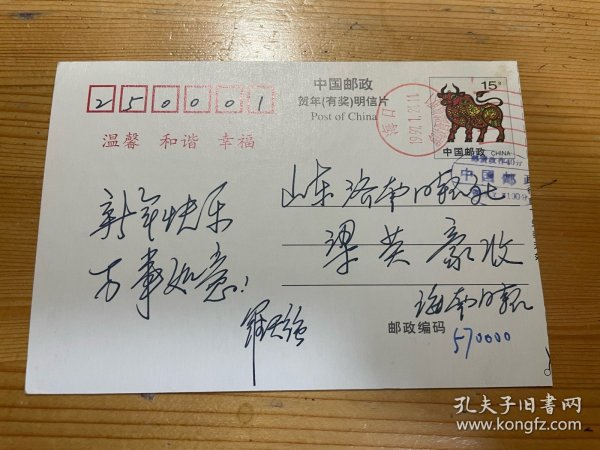 250001
中国邮政
贺年(有奖)明信片
Post of China
15分
中国邮政 CHINA
海口
1997.1.23.11
温馨 和谐 幸福
中国邮政
山东济南日报社
梁英豪收
新年快乐
万事如意!
海南日报
邮政编码
570000
孔夫子旧书网
www.kongfz.com